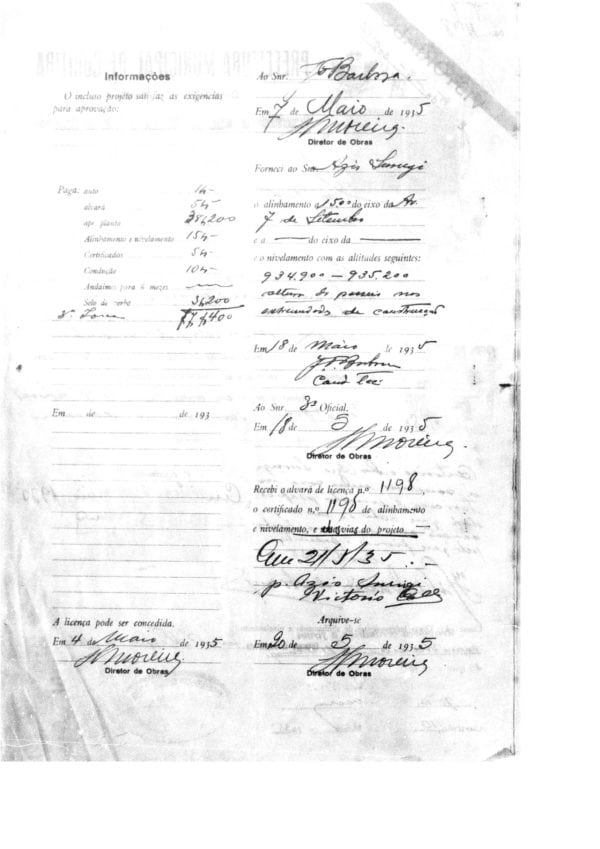 Informações
O incluso projéto satisfaz as exigencias
para aprovação:
Paga: auto 1$-
alvará 5$-
apr. planta 38$200
Alinhamento e nivelamento 15$-
Certificados 5$-
Condução 10$-
Andaimes para 6 mezes
Selo de verba 3$200
77$400
Em de de 193
A licença pode ser concedida.
Em 4 de Maio de 1935
J Moreira.
Diretor de Obras
Ao Snr. Barbosa.
Em 7 de Maio de 1935
J Moreira.
Diretor de Obras
Forneci ao Snr. Azis Surugi
o alinhamento a 15.00 do eixo da Av.
7 de Setembro
e a do eixo da
e o nivelamento com as altitudes seguintes:
934.900 — 935.200
altura dos passeios nas
extremidades da construcção
Em 18 de Maio de 1935
Ao Snr. 3º Oficial.
Em 18 de 5 de 1935
J Moreira.
Diretor de Obras
Recebi o alvará de licença n.º 1198,
o certificado n.º 1198 de alinhamento
e nivelamento, e vias do projeto —
Em 21/5/35. —
p. Azis Surugi
Victorio
Arquive-se
Em 20 de 5 de 1935
J Moreira.
Diretor de Obras